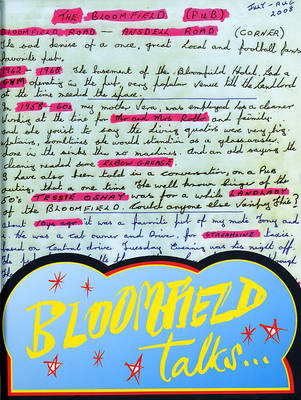 JULY - AUG
2008
THE BLOOMFIELD (PUB)
BLOOMFIELD ROAD - ANSDELL ROAD (CORNER)
The sad demise of a once, great local and football fans
favourite pub.
1962 - 1968 The basement of the Bloomfield Hotel. Had a
GYM operating in the pub, very popular venue till the Landlord
of the time needed the space.
In 1958-60s my mother Vera, was employed has a cleaner
working at the time for Mr and Mrs Rolla and family,
and she used to say the living quarters were very big
upstairs, sometimes she would stand in as a glasswasher.
Done in the sinks then no machines. And an old saying the
cleaning needed some ELBOW GREASE.
I have also been told in a conversation, on a Pub
outing, that a one time The well known singer of the
50's TESSIE OSHAY was for a while LANDLADY
of the BLOOMFIELD. (could anyone else Verify This)
about 10yrs ago it was a favourite pub of my mate Tony and
he was a cab owner and Driver for STREAMLINE taxis
on Central drive. Tuesday Evening was his night off.
BLOOMFIELD
talks...